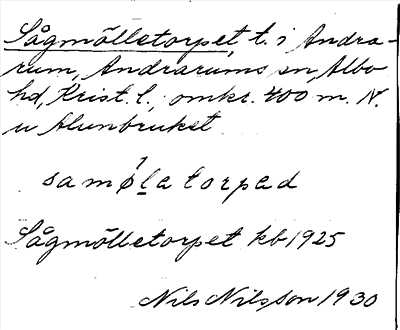 Sågmölletorpet, t. i Andra-
rum, Andrarums sn, Albo
hd, Krist. l., omkr. 400 m. N.
u Alunbruket
samø̀latorpad
Sågmölletorpet kb 1925
Nils Nilsson 1930